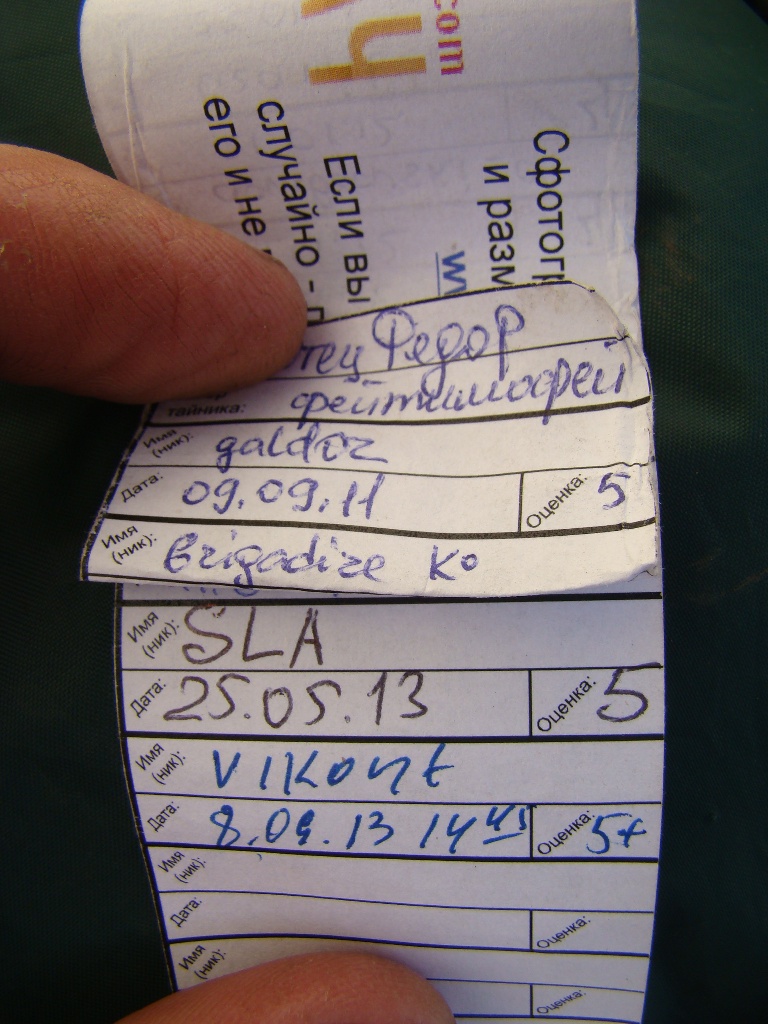 .com
Сфотогр
и разм
w
Если вы
случайно - п
его и не
тец Федор
тайника: фейтимофей
Имя (ник): galdoz
Дата: 09.09.11 Оценка: 5
Имя (ник): Brigadire Ko
Имя (ник): SLA
Дата: 25.05.13 Оценка: 5
Имя (ник): VIKont
Дата: 8.09.13 14 45 Оценка: 5+
Имя (ник):
Дата: Оценка:
Имя (ник):
Оценка: